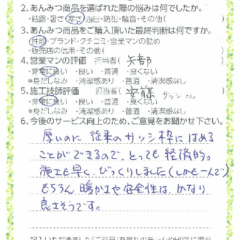 2.あんみつ商品を選ばれた際の悩みは何でしたか。
・結露・暑さ・寒さ・台風・防犯・騒音・その他(
3.あんみつ商品をご購入頂いた最終判断は何ですか。
・性能・ブランド・クチコミ・営業マンの勧め
・販売店の活用・その他(
4.営業マンの評価 担当者(
・非常に良い ・良い ・普通 ・良くない
※身だしなみ ・清潔感あり ・普通 ・清潔感なし
5.施工技師評価 担当者(安藤
・非常に良い ・良い ・普通 ・良くない
※身だしなみ ・清潔感あり ・普通 ・清潔感なし
6.今後のサービス向上のため、ご意見をお聞かせ下さい。
厚いのに 従来のサッシ枠にはめる
ことができるので、とっても経済的。
施工も早く びっくりしました
もちろん 暖かさや安全性は、かなり
良さそうです。